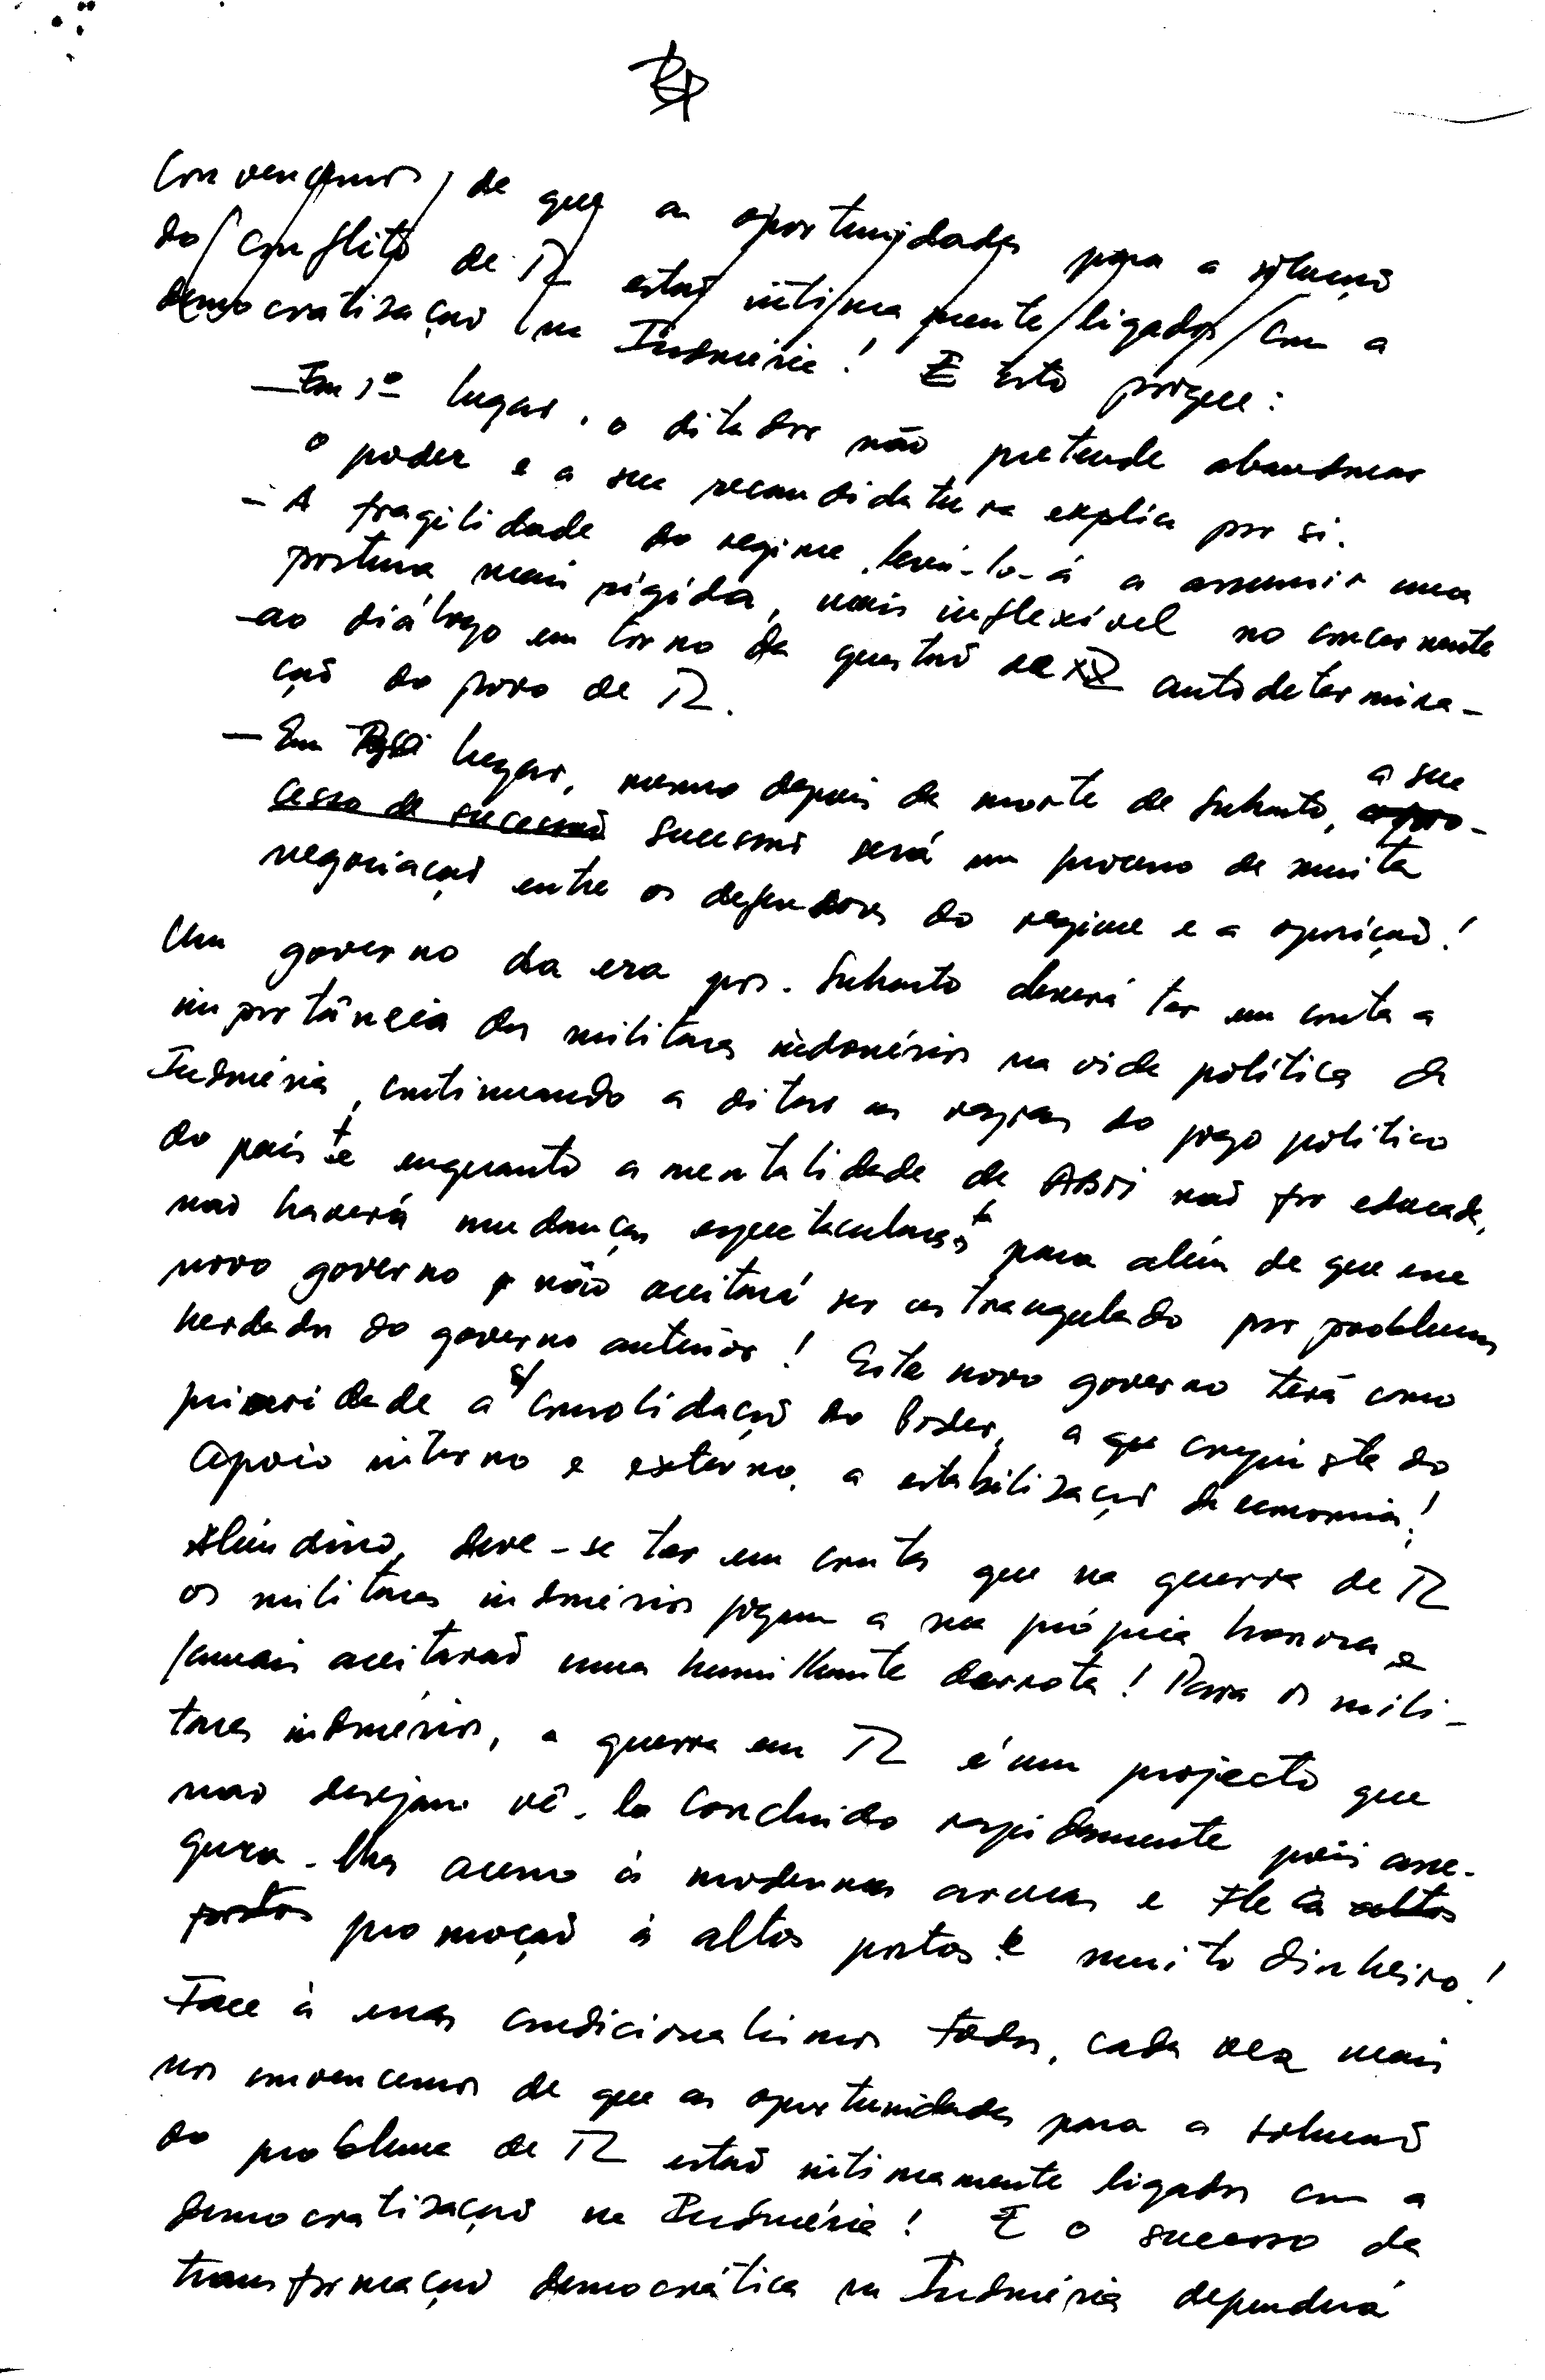 Convencemos, de que as oportunidades para a solução
do conflito de TL estão intimamente ligados com a
democratização na Indonésia! E isto porque:
— Em 1º lugar, o ditador não pretende abandonar
o poder e a sua recandidatura explica por si.
- A fragilidade do regime levá-lo-á a assumir uma
postura mais rígida, mais inflexível no concernente
ao diálogo em torno da questão de autodetermina-
ção do povo de TL.
— Em lugar, mesmo depois da morte de Suharto, a sua o pro-
cesso de sucessão sucessão será um processo de muita
negociação entre os defensores do regime e a oposição!
Um governo da era pos-Suharto deverá ter em conta a
importância dos militares indonésios na vida política da
Indonésia, continuando a ditar as regras do jogo político
do país e enquanto a mentalidade da ABRI não for educada,
não haverá mudanças espectaculares, para além de que esse
novo governo não aceitará ser estrangulado por problemas
herdados do governo anterior! Este novo governo terá como
prioridade a consolidação do Poder, a conquista do
Apoio interno e externo, a estabilização da economia!
Além disso, deve-se ter em conta que na guerra de TL
os militares indonésios jogam a sua própria honra e
jamais aceitarão uma humilhante derrota! Para os mili-
tares indonésios, a guerra em TL é um projecto que
não desejam vê-lo concluido rapidamente pois asse-
gura-lhes acesso às modernas armas e à altos
postos promoção à altos postos e muito dinheiro!
Face à essas condicionalismos todos, cada vez mais
nos convencemos de que as oportunidades para a solução
do problema de TL estão intimamente ligados com a
democratização na Indonésia! E o sucesso da
transformação democrática na Indonésia dependerá